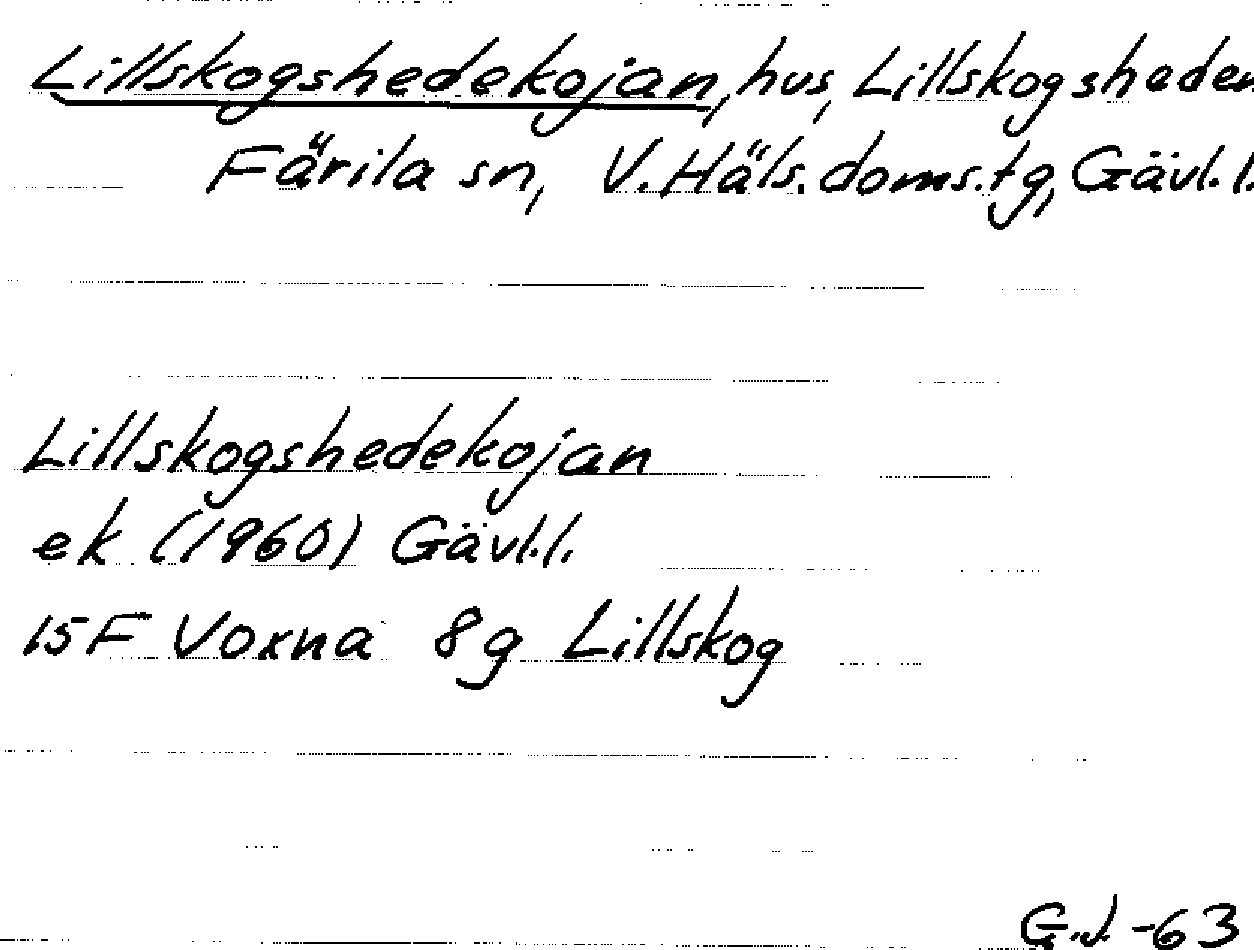 Lillskogshedekojan, hus, Lillskogsheden
Färila sn, V. Häls. doms.tg, Gävl. l.
Lillskogshedekojan
ek (1960) Gävl. l.
15F Voxna 8g Lillskog
G.J -63